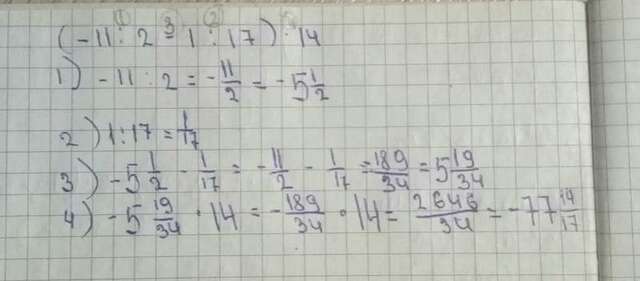 ① 3 ②
(-11 : 2 - 1 : 17) · 14
1) -11 : 2 = -11/2 = -5 1/2
2) 1:17 = 1/17
3) -5 1/2 - 1/17 = -11/2 - 1/17 = 189/34 = 5 19/34
4) -5 19/34 · 14 = -189/34 · 14 = 2646/34 = -77 14/17